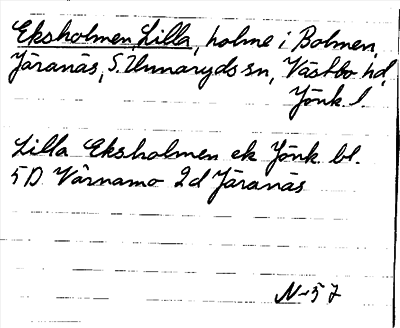 Eksholmen, Lilla, holme i Bolmen,
Järanäs, S. Unnaryds sn, Västbo hd,
Jönk l.
Lilla Eksholmen ek Jönk bl.
5 D Värnamo 2d Järanäs
N-57